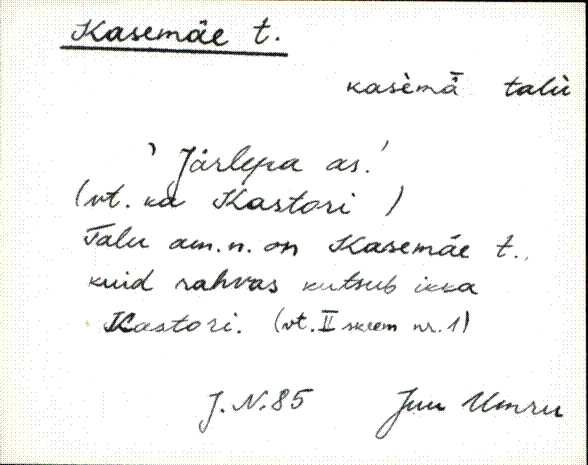 Kasemäe t.
kasèmǟ talù
' Järlepa as.'
(vt. ka Kastori )
Talu am.n. on Kasemäe t.,
kuid rahvas kutsub ikka
Kastori. (vt. II skeem nr. 1)
J. N. 85 Juu Umru